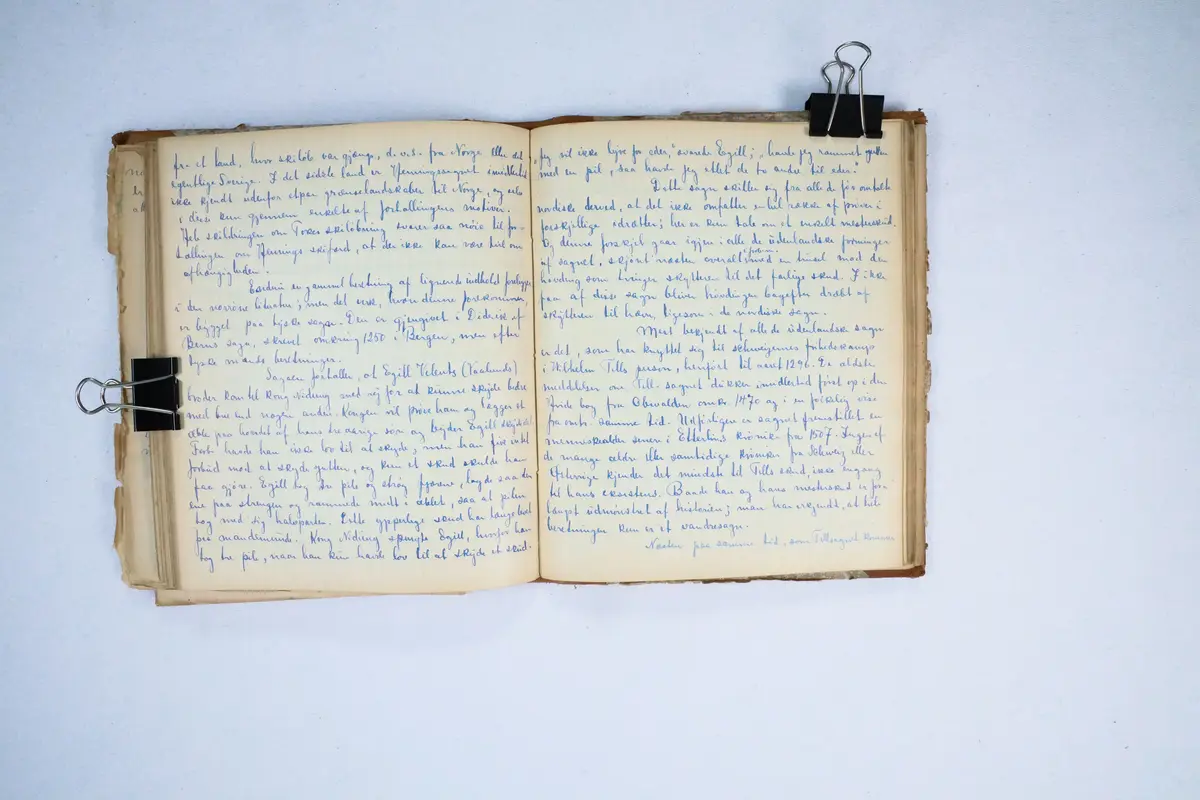 fra et land, hvor skiløb var gjængs, d.v.s. fra Norge eller det
egentlige Sverige. I det sidste land er Hemingsagnet imidlertid
ikke kjendt udenfor etpar grænselandskaber til Norge, og selv
i disse kun gjennem enkelte af fortællingens motiver.
Selv skildringen om Tokes skiløbning svarer saa nøie til for-
tællingen om Hemings skifærd, at der ikke kan være tvil om
afhængigheden.
Endnu en gammel beretning af lignende indhold foreligger
i den norrøne literatur; men det verk, hvori denne forekommer,
er bygget paa tyske sagn. Den er gjengivet i Didrik af
Berns saga, skrevet omkring 1250 i Bergen, men efter
tyske mænds beretninger.
Sagaen fortæller, at Egill Velents (Vaulunds)
broder kom til Kong Nidung med ry for at kunne skyde bedre
med bue end nogen anden. Kongen vil prøve ham og lægger et
æble paa hovedet af hans tre aarige søn og byder Egill skyde det
bort. Havde han ikke lov til at skyde, men han fik intet
forbud mod at skyde gutten, og kun et skud skulde han
faa gjøre. Egill tog tre pile og strøg fjærene, lagde saa den
ene paa strengen og rammede midt i æblet, saa at pilen
tog med sig halvparten. Dette gjævelige skud har længe levet
paa mandeminde. Kong Nidung spurgte Egill, hvorfor han
tog tre pile, naar han kun havde lov til at skyde et skud.
"Jeg vil ikke lyve for eder," svarede Egill; "havde jeg rammet gutten
med en pil, saa havde jeg ætlet de to andre til eder."
Dette sagn skiller sig fra alle de før omtalte
nordiske derved, at det ikke omfatter en hel række af prøver i
forskjellige idrætter; her er kun tale om et enkelt mesterskud.
Og denne forskjel gaar igjen i alle de udenlandske formninger
af sagnet, skjønt næsten overalt i forbind. med en trusel mod den
høvding som tvinger skytteren til det farlige skud. I ikke
faa af disse sagn bliver høvdingen bagefter dræbt af
skytteren til hævn, ligesom i de nordiske sagn.
Mest bekjendt af alle de udenlandske sagn
er det, som har knyttet sig til schweizernes frihedskamp
i Wilhelm Tells person, henført til aaret 1296. En ældste
meddelelse om Tell-sagnet dukker imidlertid først op i den
hvide bog fra Obwalden omkr. 1470 og i en folkelig vise
fra omtr. samme tid. Udførligere er sagnet fremstillet en
menneskealder senere i Etterlins krønike fra 1507. Ingen af
de mange ældre eller samtidige krøniker fra Schweiz eller
Østerrige kjender det mindste til Tells skud, ikke engang
til hans eksistens. Baade han og hans mesterskud er for
længst udmønstret af historien; man har erkjendt, at hele
beretningen kun er et vandresagn.
Næsten paa samme tid, som Tellsagnet kommer